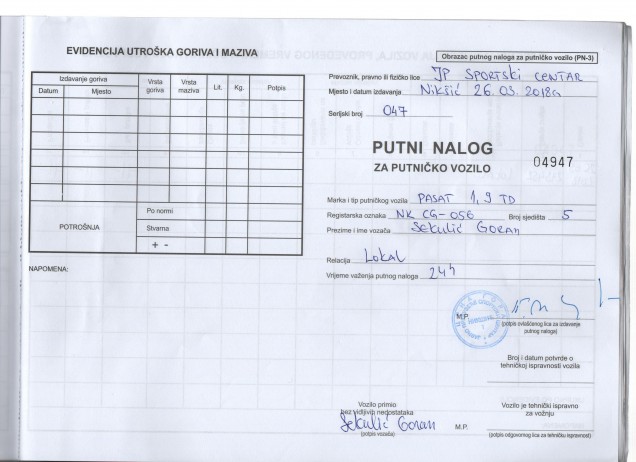 EVIDENCIJA UTROŠKA GORIVA I MAZIVA
Izdavanje goriva
Datum Mjesto Vrsta goriva Vrsta maziva Lit. Kg. Potpis
POTROŠNJA
Po normi
Stvarna
+ -
NAPOMENA:
Obrazac putnog naloga za putničko vozilo (PN-3)
Prevoznik, pravno ili fizičko lice JP SPORTSKI CENTAR
Mjesto i datum izdavanja Nikšić 26.03.2018g
Serijski broj 047
PUTNI NALOG
ZA PUTNIČKO VOZILO 04947
Marka i tip putničkog vozila PASAT 1,9 TD
Registarska oznaka NK CG-056 Broj sjedišta 5
Prezime i ime vozača Sekulić GORAN
Relacija Lokal
Vrijeme važenja putnog naloga 24h
M.P.
(potpis ovlašćenog lica za izdavanje
putnog naloga)
Broj i datum potvrde o
tehničkoj ispravnosti vozila
Vozilo primio
bez vidljivih nedostataka
Sekulić Goran
(potpis vozača)
M.P.
Vozilo je tehnički ispravno
za vožnju
(potpis odgovornog lica za tehničku ispravnost)